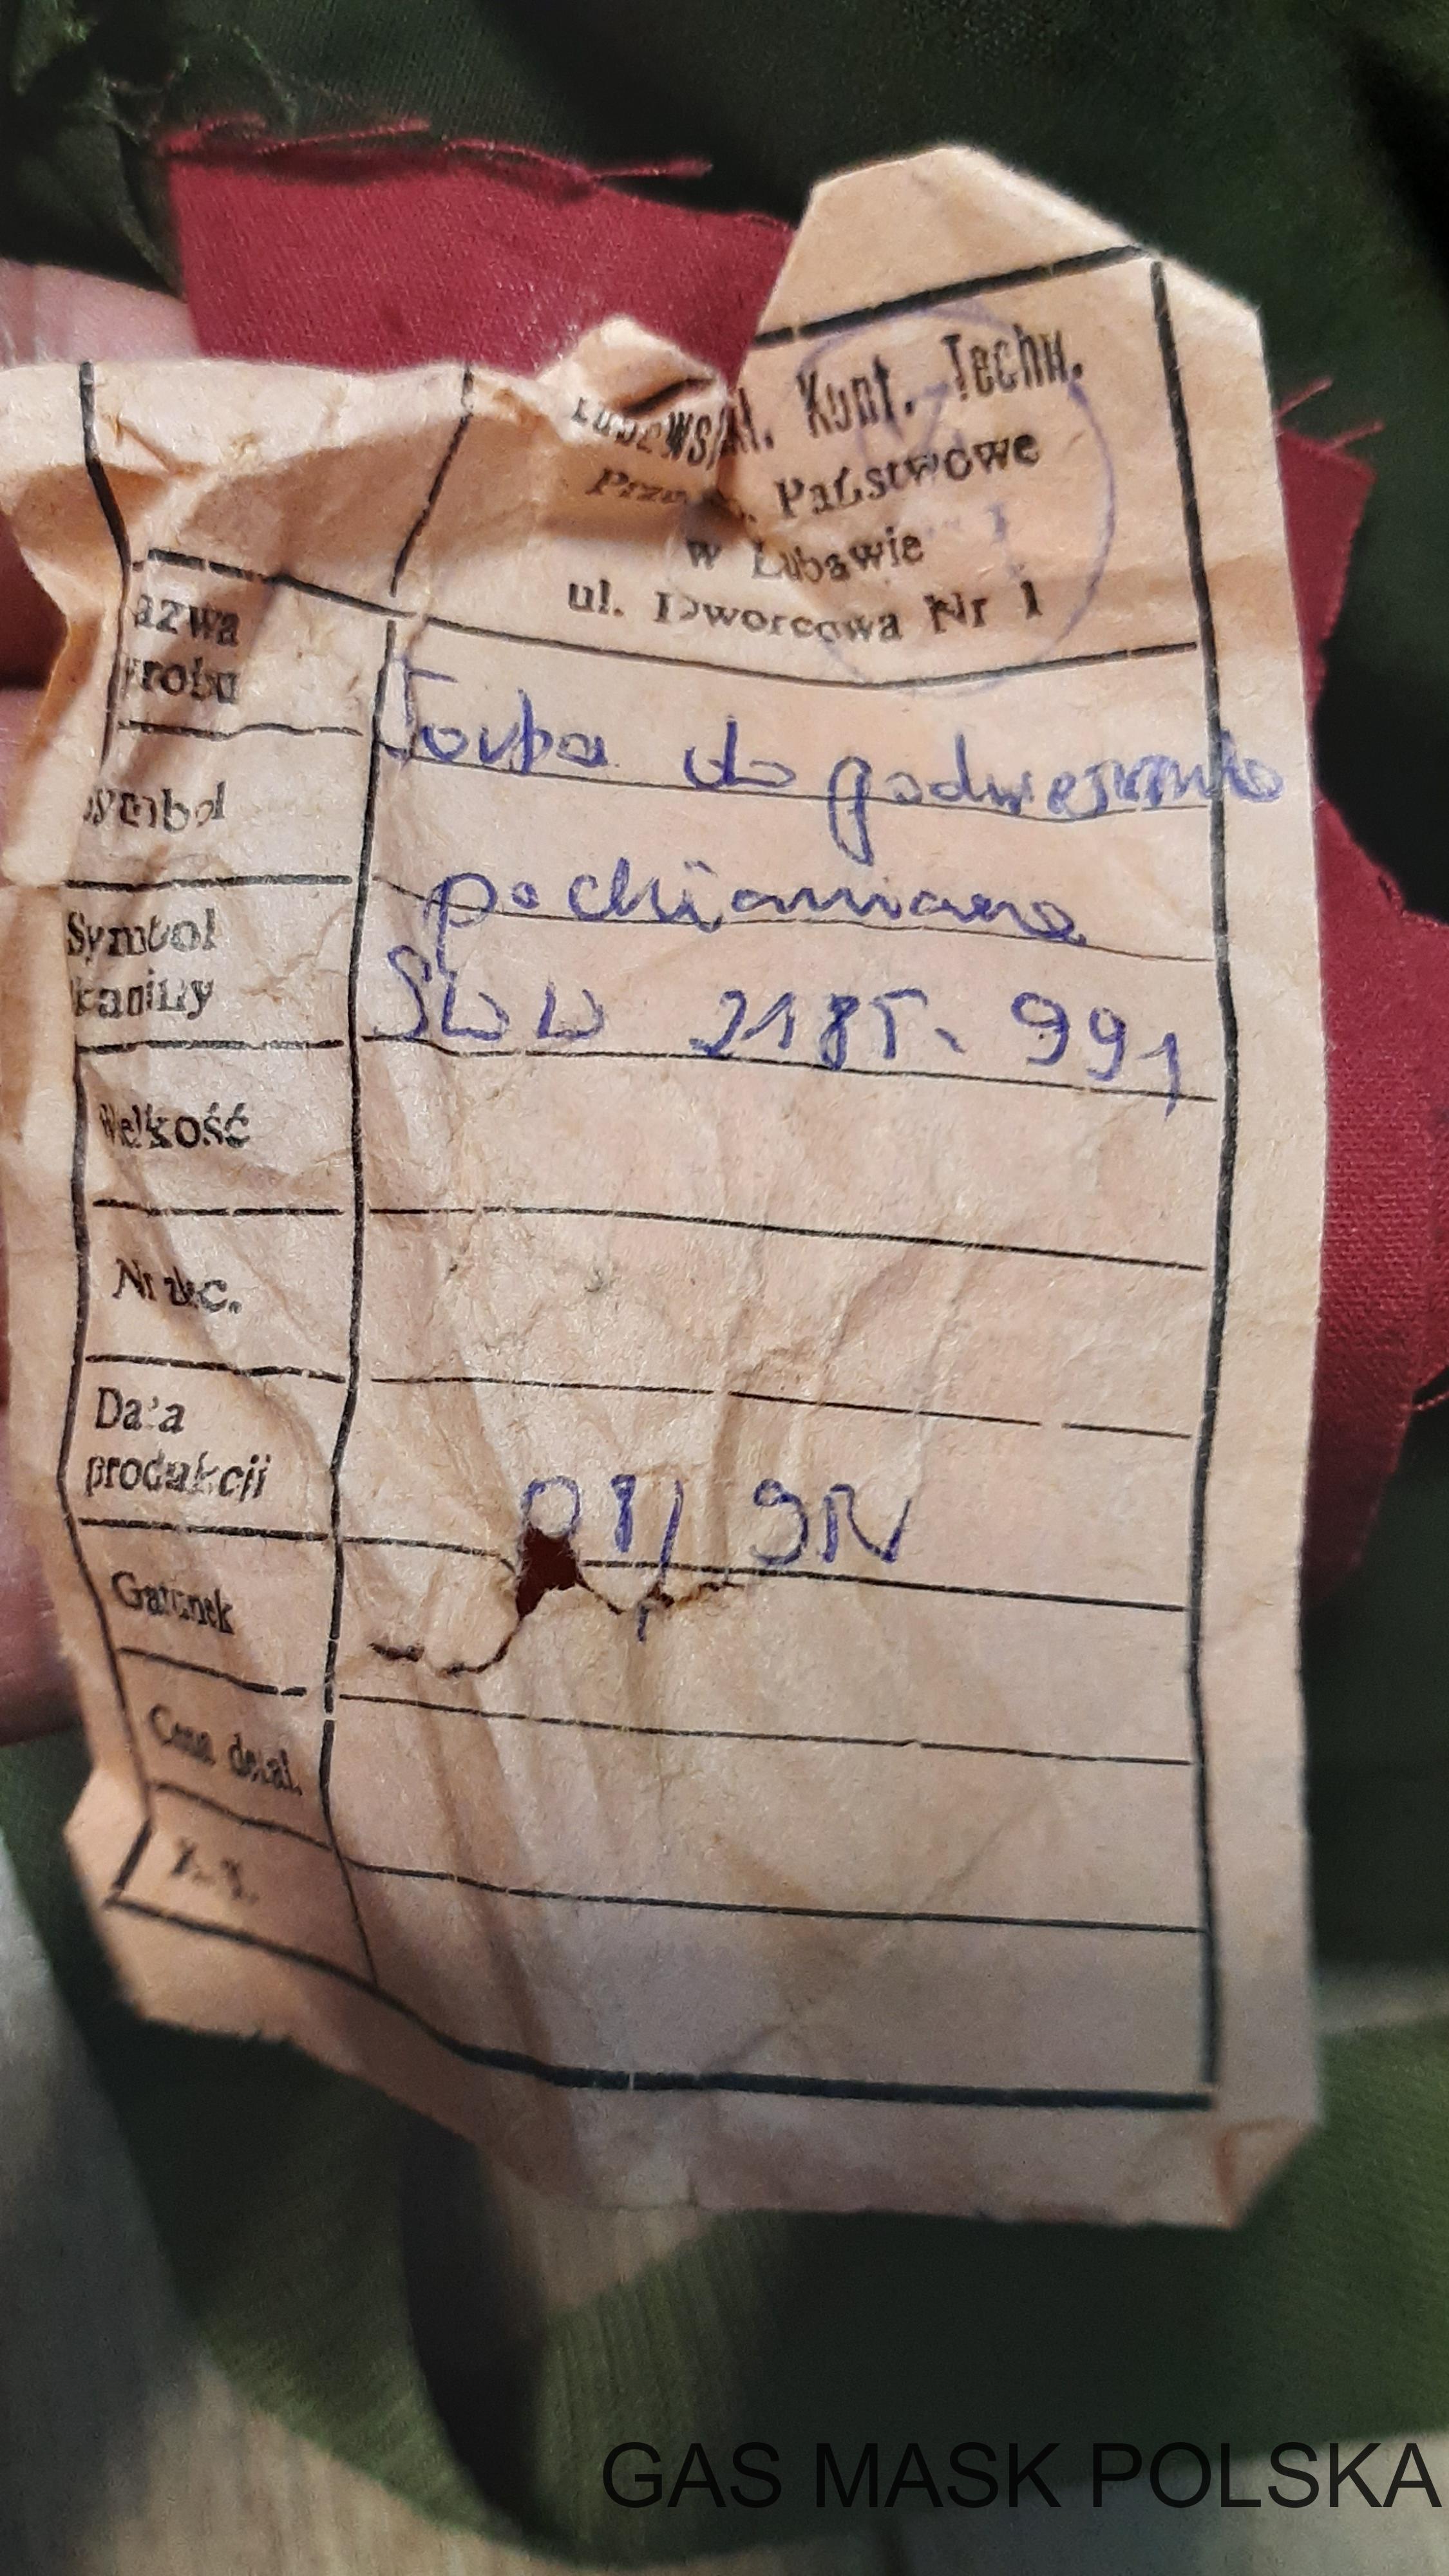 Kont. Techn.
Państwowe
w Lubawie
ul. Dworcowa Nr 1
azwa
robu
Torba do
ymbol
Symbol
kaniny
SWW 2185-991
Wielkość
Nr akc.
Data
produkcji
08/
Gatunek
Cena detal.
GAS MASK POLSKA